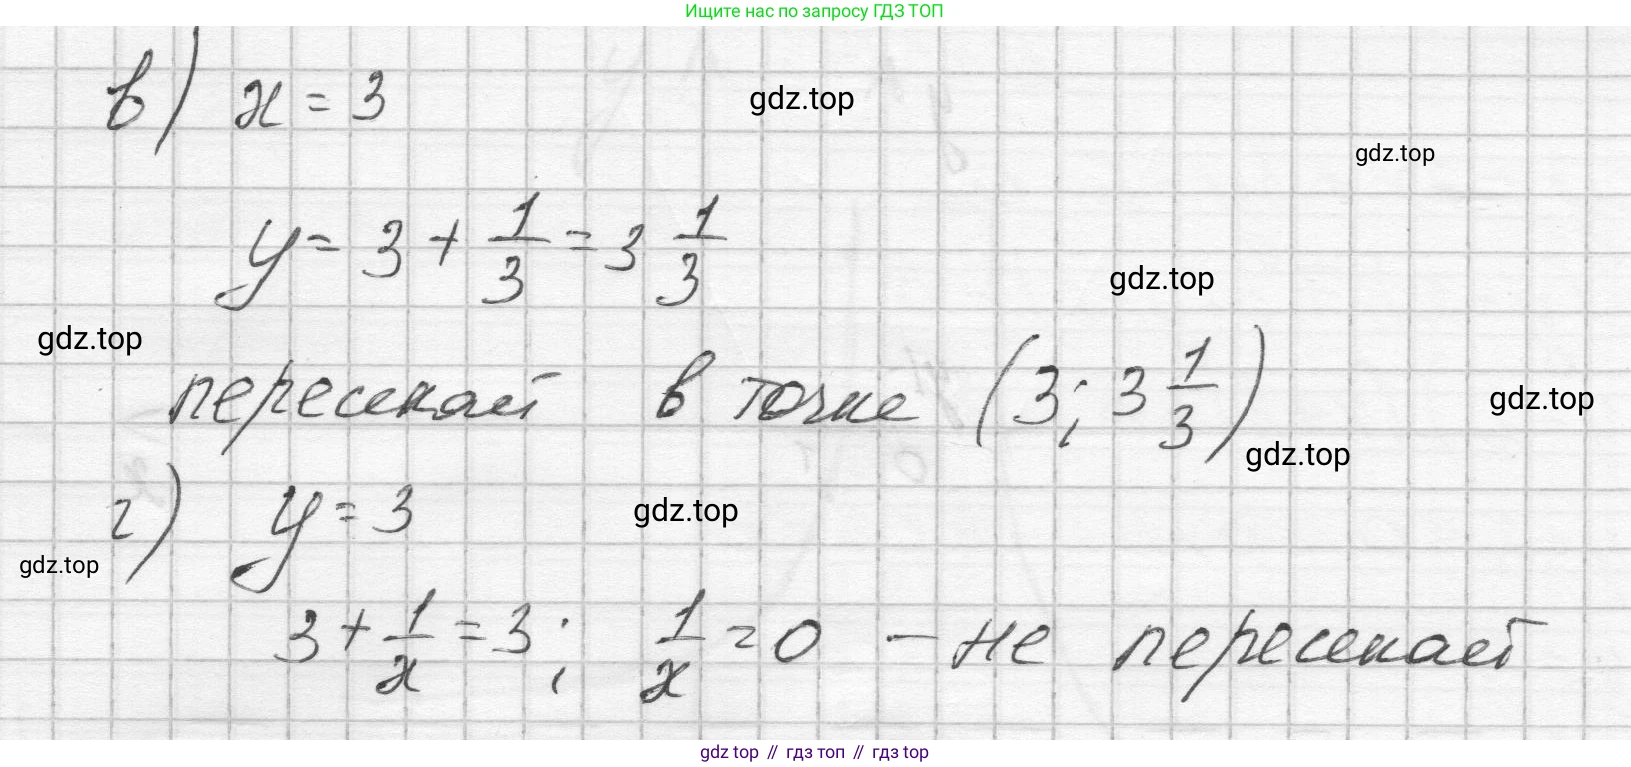 Ищите нас по запросу ГДЗ ТОП
в) x = 3
gdz.top
gdz.top
y = 3 + 1/3 = 3 1/3
gdz.top
gdz.top
пересекает в точке (3; 3 1/3)
gdz.top
gdz.top
г) y = 3
gdz.top
gdz.top
3 + 1/x = 3; 1/x = 0 – не пересекает
gdz.top // гдз топ // гдз top